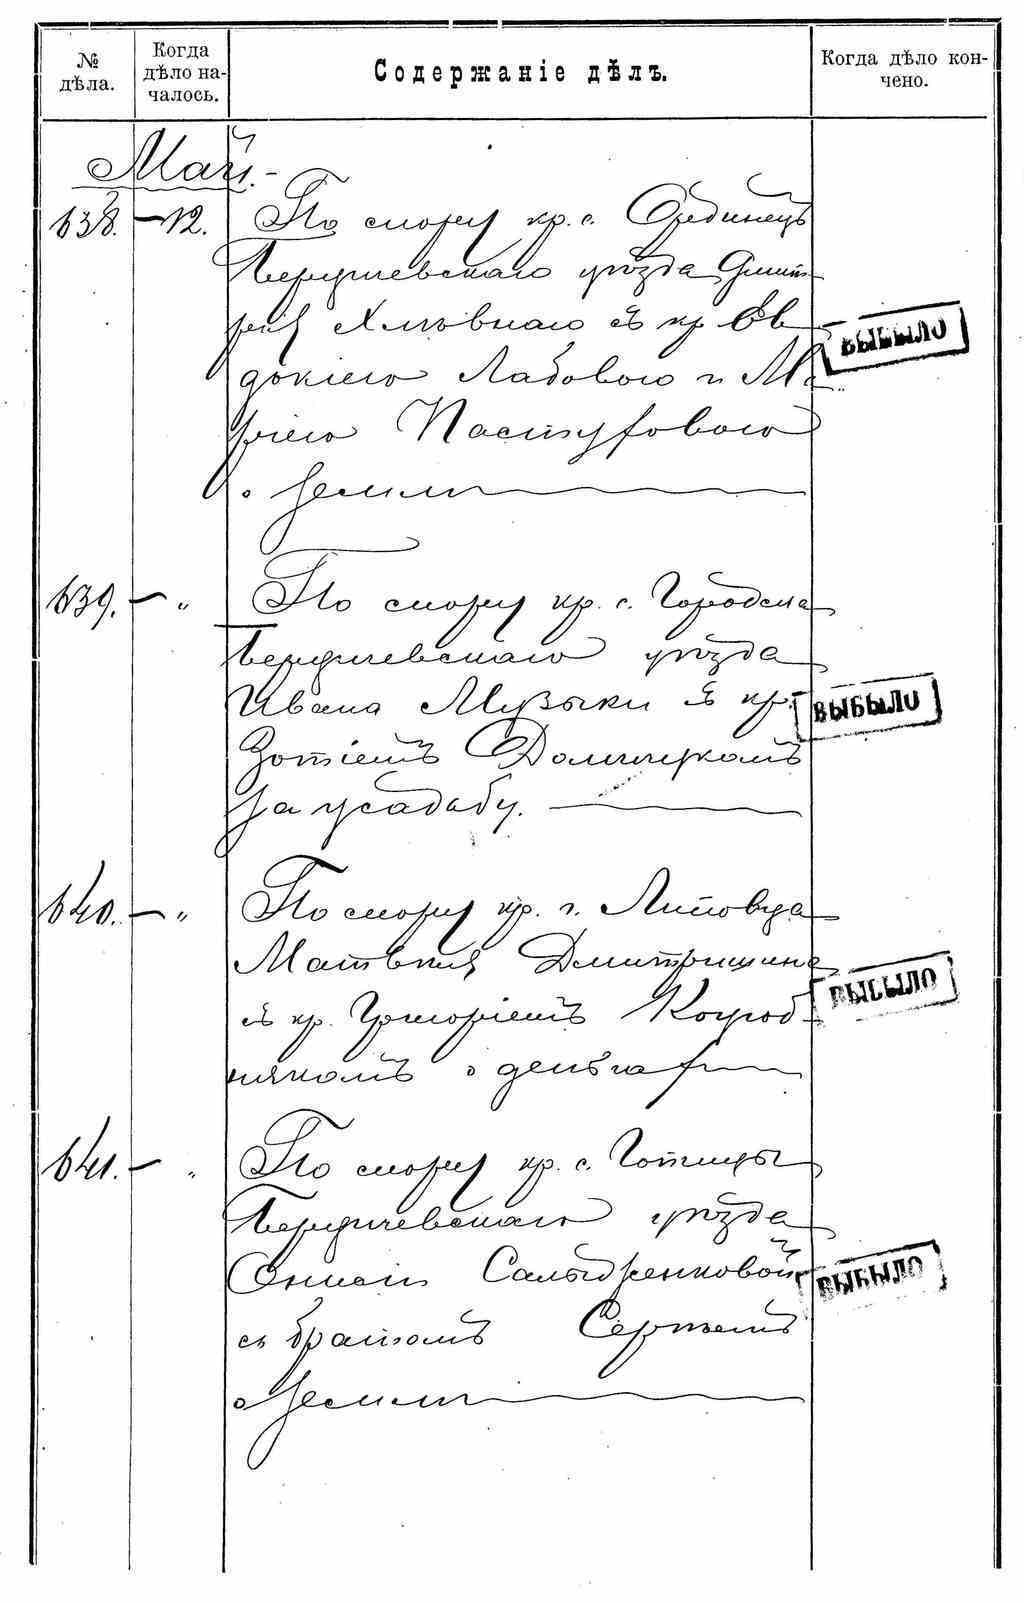 № дѣла.
Когда дѣло на-
чалось.
Содержаніе дѣлъ.
Когда дѣло кон-
чено.
Май.
638. — 12. По спору кр. с. Ординецъ
Бердичевскаго уѣзда Дмит-
рія Хлѣвнаго съ кр Ев
докіею Лабовою и Ма
ріею Пастуховою
о землѣ
ВЫБЫЛО
639. — „ По спору кр. с. Городска
Бердичевскаго уѣзда
Ивана Музыки съ кр.
Зотіемъ
за усадьбу.
ВЫБЫЛО
640. — „ По спору кр. г. Липовца
Матвѣя Дмитришина
съ кр. Григоріемъ
о деньгах
ВЫБЫЛО
641. — „ По спору кр. с.
Бердичевскаго уѣзда
Онисіи
съ братомъ Сергѣемъ
о землѣ
ВЫБЫЛО